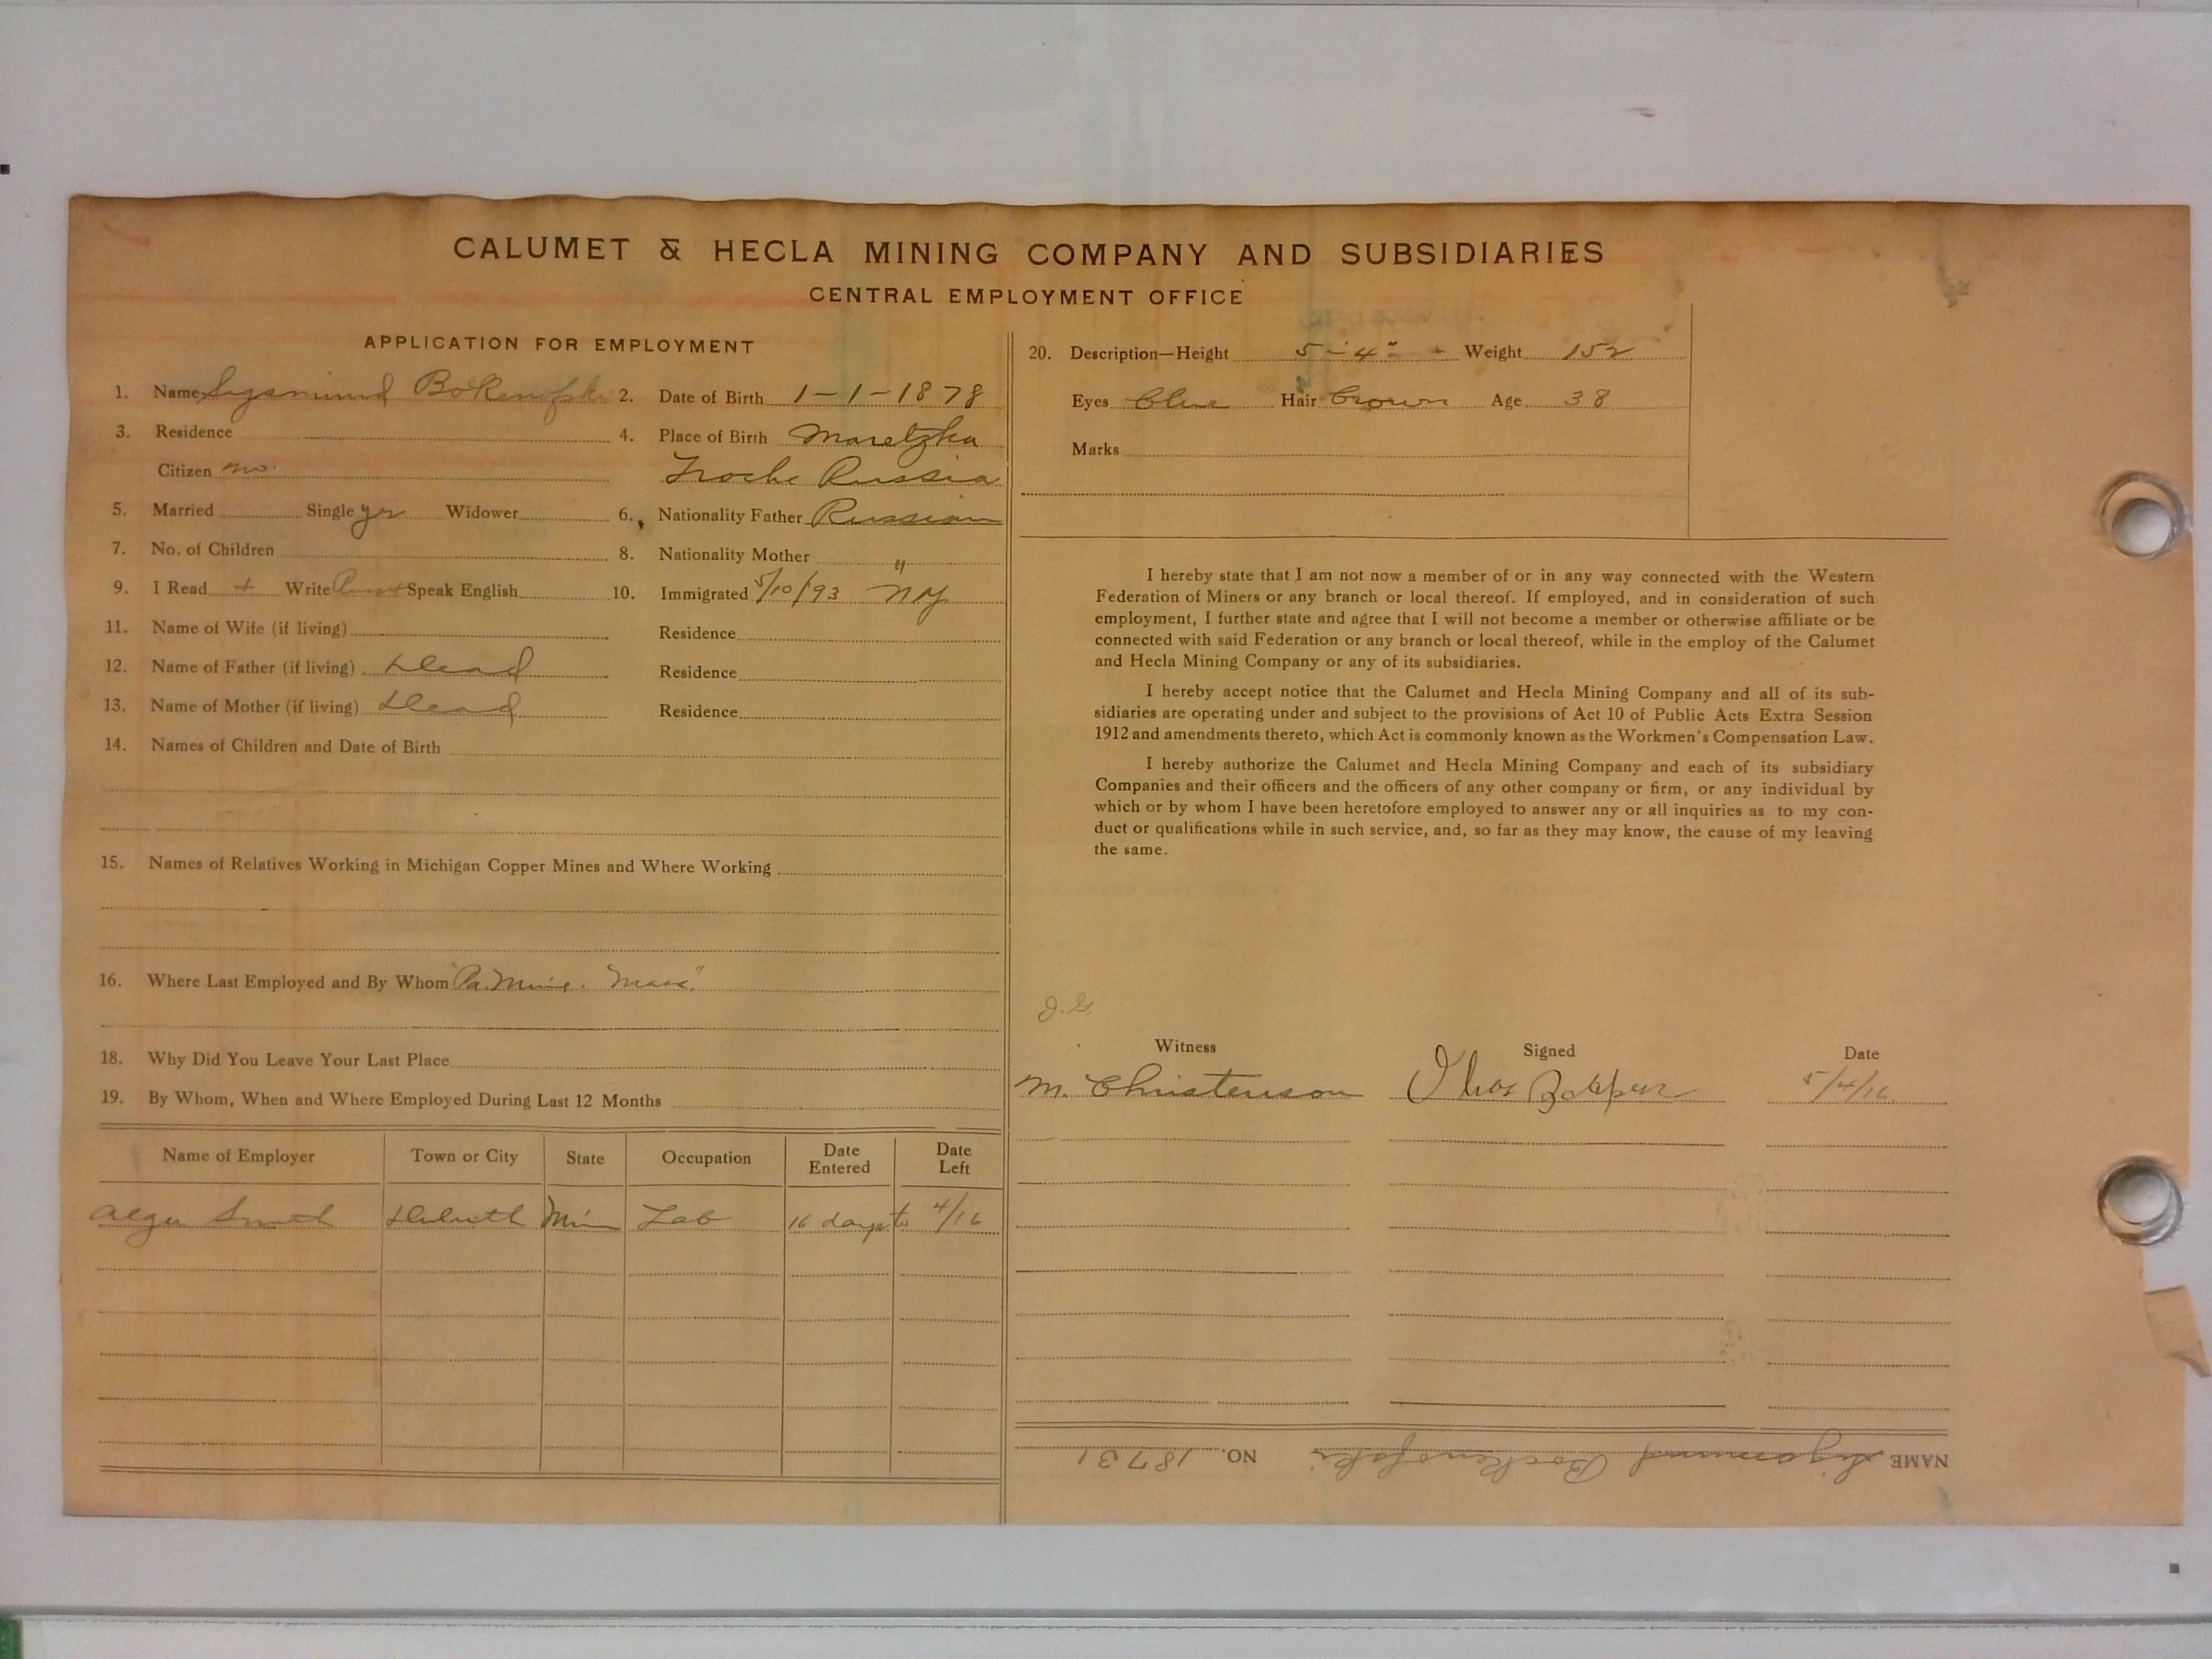 CALUMET & HECLA MINING COMPANY AND SUBSIDIARIES
CENTRAL EMPLOYMENT OFFICE
APPLICATION FOR EMPLOYMENT
1. Name Sygsmund Bokenofski 2. Date of Birth 1-1-1878
3. Residence 4. Place of Birth Maretzka
Citizen no. Troche Russia
5. Married Single yes Widower 6. Nationality Father Russian
7. No. of Children 8. Nationality Mother "
9. I Read + Write Speak English 10. Immigrated 5/10/93 NY
11. Name of Wife (if living) Residence
12. Name of Father (if living) Dead Residence
13. Name of Mother (if living) Dead Residence
14. Names of Children and Date of Birth
15. Names of Relatives Working in Michigan Copper Mines and Where Working
16. Where Last Employed and By Whom "Pa. Mine. Mass."
18. Why Did You Leave Your Last Place
19. By Whom, When and Where Employed During Last 12 Months
Name of Employer Town or City State Occupation Date Entered Date Left
Alger Smith Duluth Min Lab 16 days to 4/16
20. Description—Height 5-4" Weight 152
Eyes Blue Hair Brown Age 38
Marks
I hereby state that I am not now a member of or in any way connected with the Western
Federation of Miners or any branch or local thereof. If employed, and in consideration of such
employment, I further state and agree that I will not become a member or otherwise affiliate or be
connected with said Federation or any branch or local thereof, while in the employ of the Calumet
and Hecla Mining Company or any of its subsidiaries.
I hereby accept notice that the Calumet and Hecla Mining Company and all of its sub-
sidiaries are operating under and subject to the provisions of Act 10 of Public Acts Extra Session
1912 and amendments thereto, which Act is commonly known as the Workmen's Compensation Law.
I hereby authorize the Calumet and Hecla Mining Company and each of its subsidiary
Companies and their officers and the officers of any other company or firm, or any individual by
which or by whom I have been heretofore employed to answer any or all inquiries as to my con-
duct or qualifications while in such service, and, so far as they may know, the cause of my leaving
the same.
J.G.
Witness Signed Date
M. Christenson 5/4/16
NAME Sigsmund Bockenofski NO. 18731